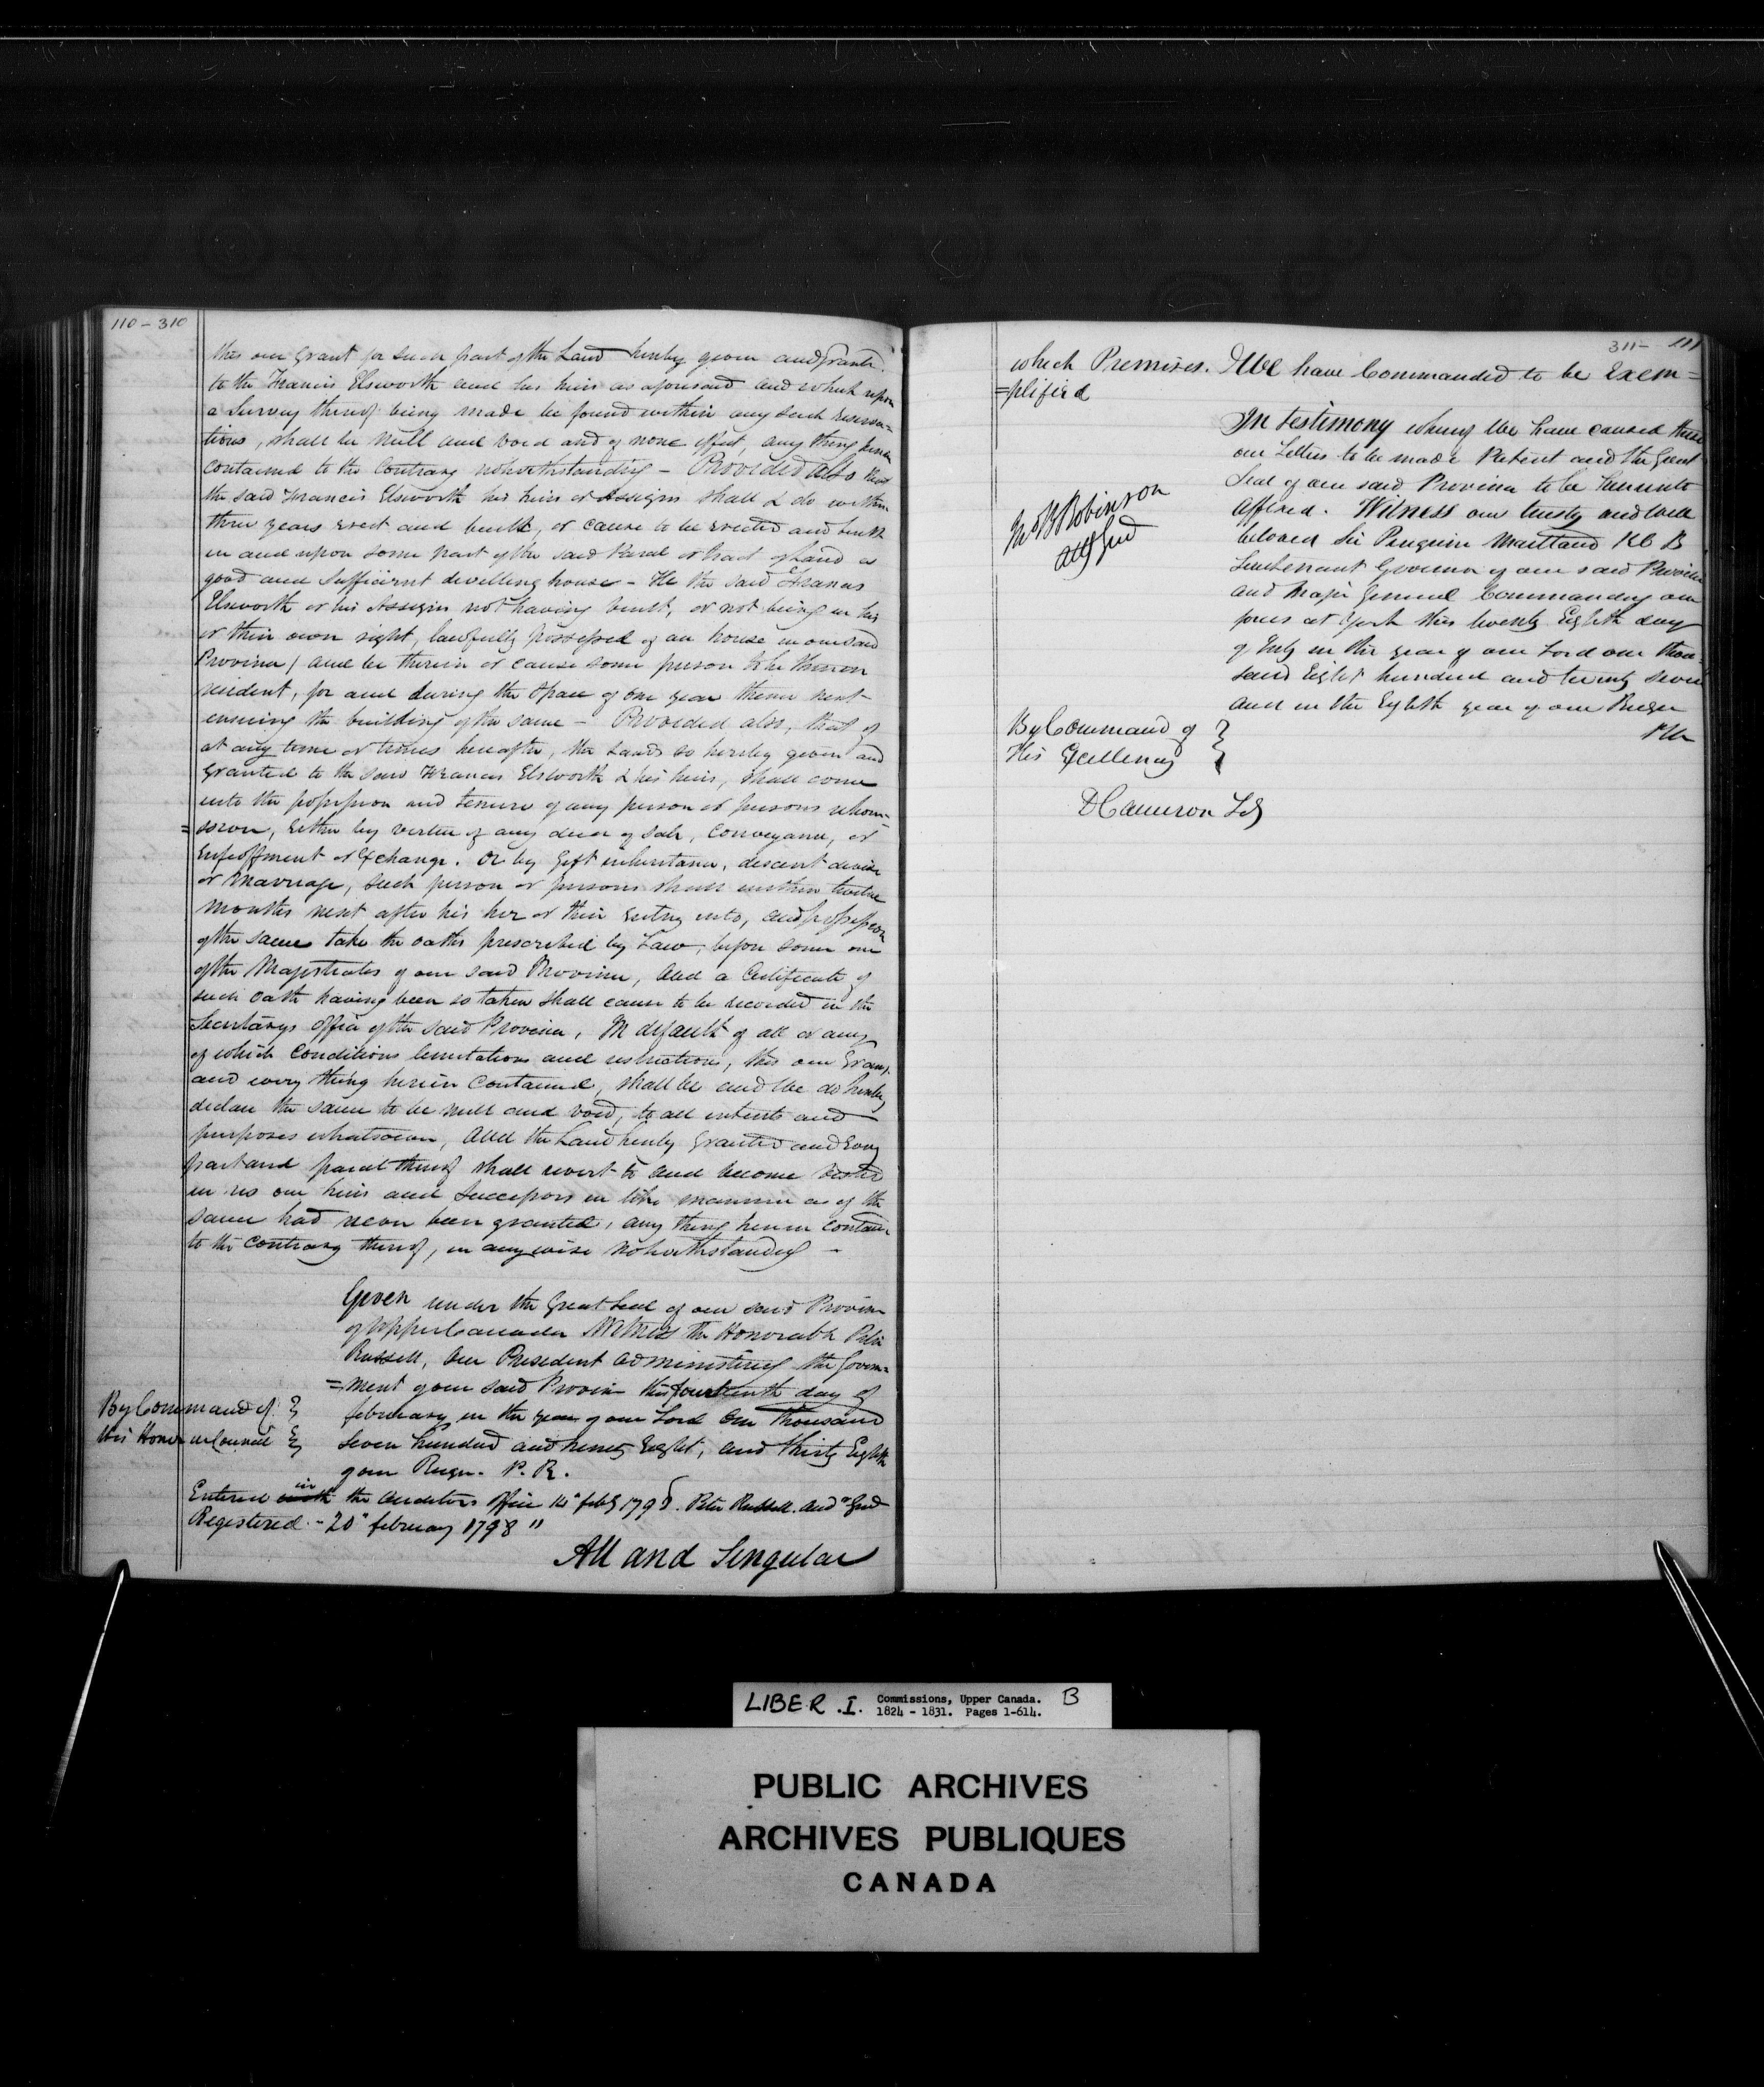 110 - 310
this our Grant, for such part of the Land hereby given and Grante
to the Francis Elsworth and his heirs as aforesaid and which upon
a Survey thereof being made be found within any such reserva=
tions, shall be null and void and of none effect, any thing herein
contained to the contrary notwithstanding - Provided also that
the said Francis Elsworth his heirs or Assigns shall & do within
three years erect and built, or cause to be erected and built
in and upon some part of the said Parcel or tract of Land a
good and sufficient dwelling house - He the said Francis
Elsworth or his Assigns not having built, or not being in his
or their own right, lawfully possessed of an house in our said
Province / and be therein or cause some person to be thereon
resident, for and during the space of one year thence next
ensuing the building of the same - Provided also, that if
at any time or times hereafter, the Lands so hereby given and
Granted to the said Francis Elsworth & his heirs, shall come
into the possession and tenure of any person or persons whom=
=soever, Either by virtue of any deed of Sale, Conveyance, or
Enfeoffment or Exchange. Or by Gift inheritance, descent devise
or Marriage, such person or persons shall within twelve
months next after his her or their entry into, and possession
of the same take the oaths prescribed by Law, before some one
of the Magistrates of our said Province, And a Certificate of
such oath having been so taken shall cause to be recorded in the
Secretarys Office of the said Province, In default of all or any
of which Conditions limitations and restrictions, this our Grant
and every thing herein Contained, shall be and We do hereby
declare the same to be null and void, to all intents and
purposes whatsoever, And the Land hereby Granted and Every
part and parcel thereof shall revert to and become vested
in us our heirs and Successors in like manner as if the
same had never been granted, any thing herein contain
to the contrary thereof, in anywise notwithstanding -
Given under the Great Seal of our said Province
of Upper Canada Witness the Honorable Peter
Russell, our President administering the Govern=
=ment of our said Province this fourteenth day of
february in the year of our Lord One Thousand
Seven hundred and ninety Eight, and thirty Eighth
of our Reign. P. R.
By Command of
His Honor in Council
Entered in with the Auditors Office 14" feby 1798. Peter Russell. Aud Genl
Registered - 20" february 1798 "
All and Singular
311 - 111
which Premises. We have Commanded to be Exem=
=plified
In testimony whereof We have caused these
our Letters to be made Patent and the Great
Seal of our said Province to be hereunto
affixed. Witness our trusty and well
beloved Sir Peregrine Maitland KCB
Lieutenant Governor of our said Province
and Major General Commanding our
forces at York this twenty Eighth day
of July in the year of our Lord one thou=
sand Eight hundred and twenty seven
and in the Eighth year of our Reign
PM
Jno B Robinson
Atty Genl
By Command of
His Excellency
D Cameron Secy
LIBER .I. Commissions, Upper Canada. B
1824 - 1831. Pages 1-614.
PUBLIC ARCHIVES
ARCHIVES PUBLIQUES
CANADA